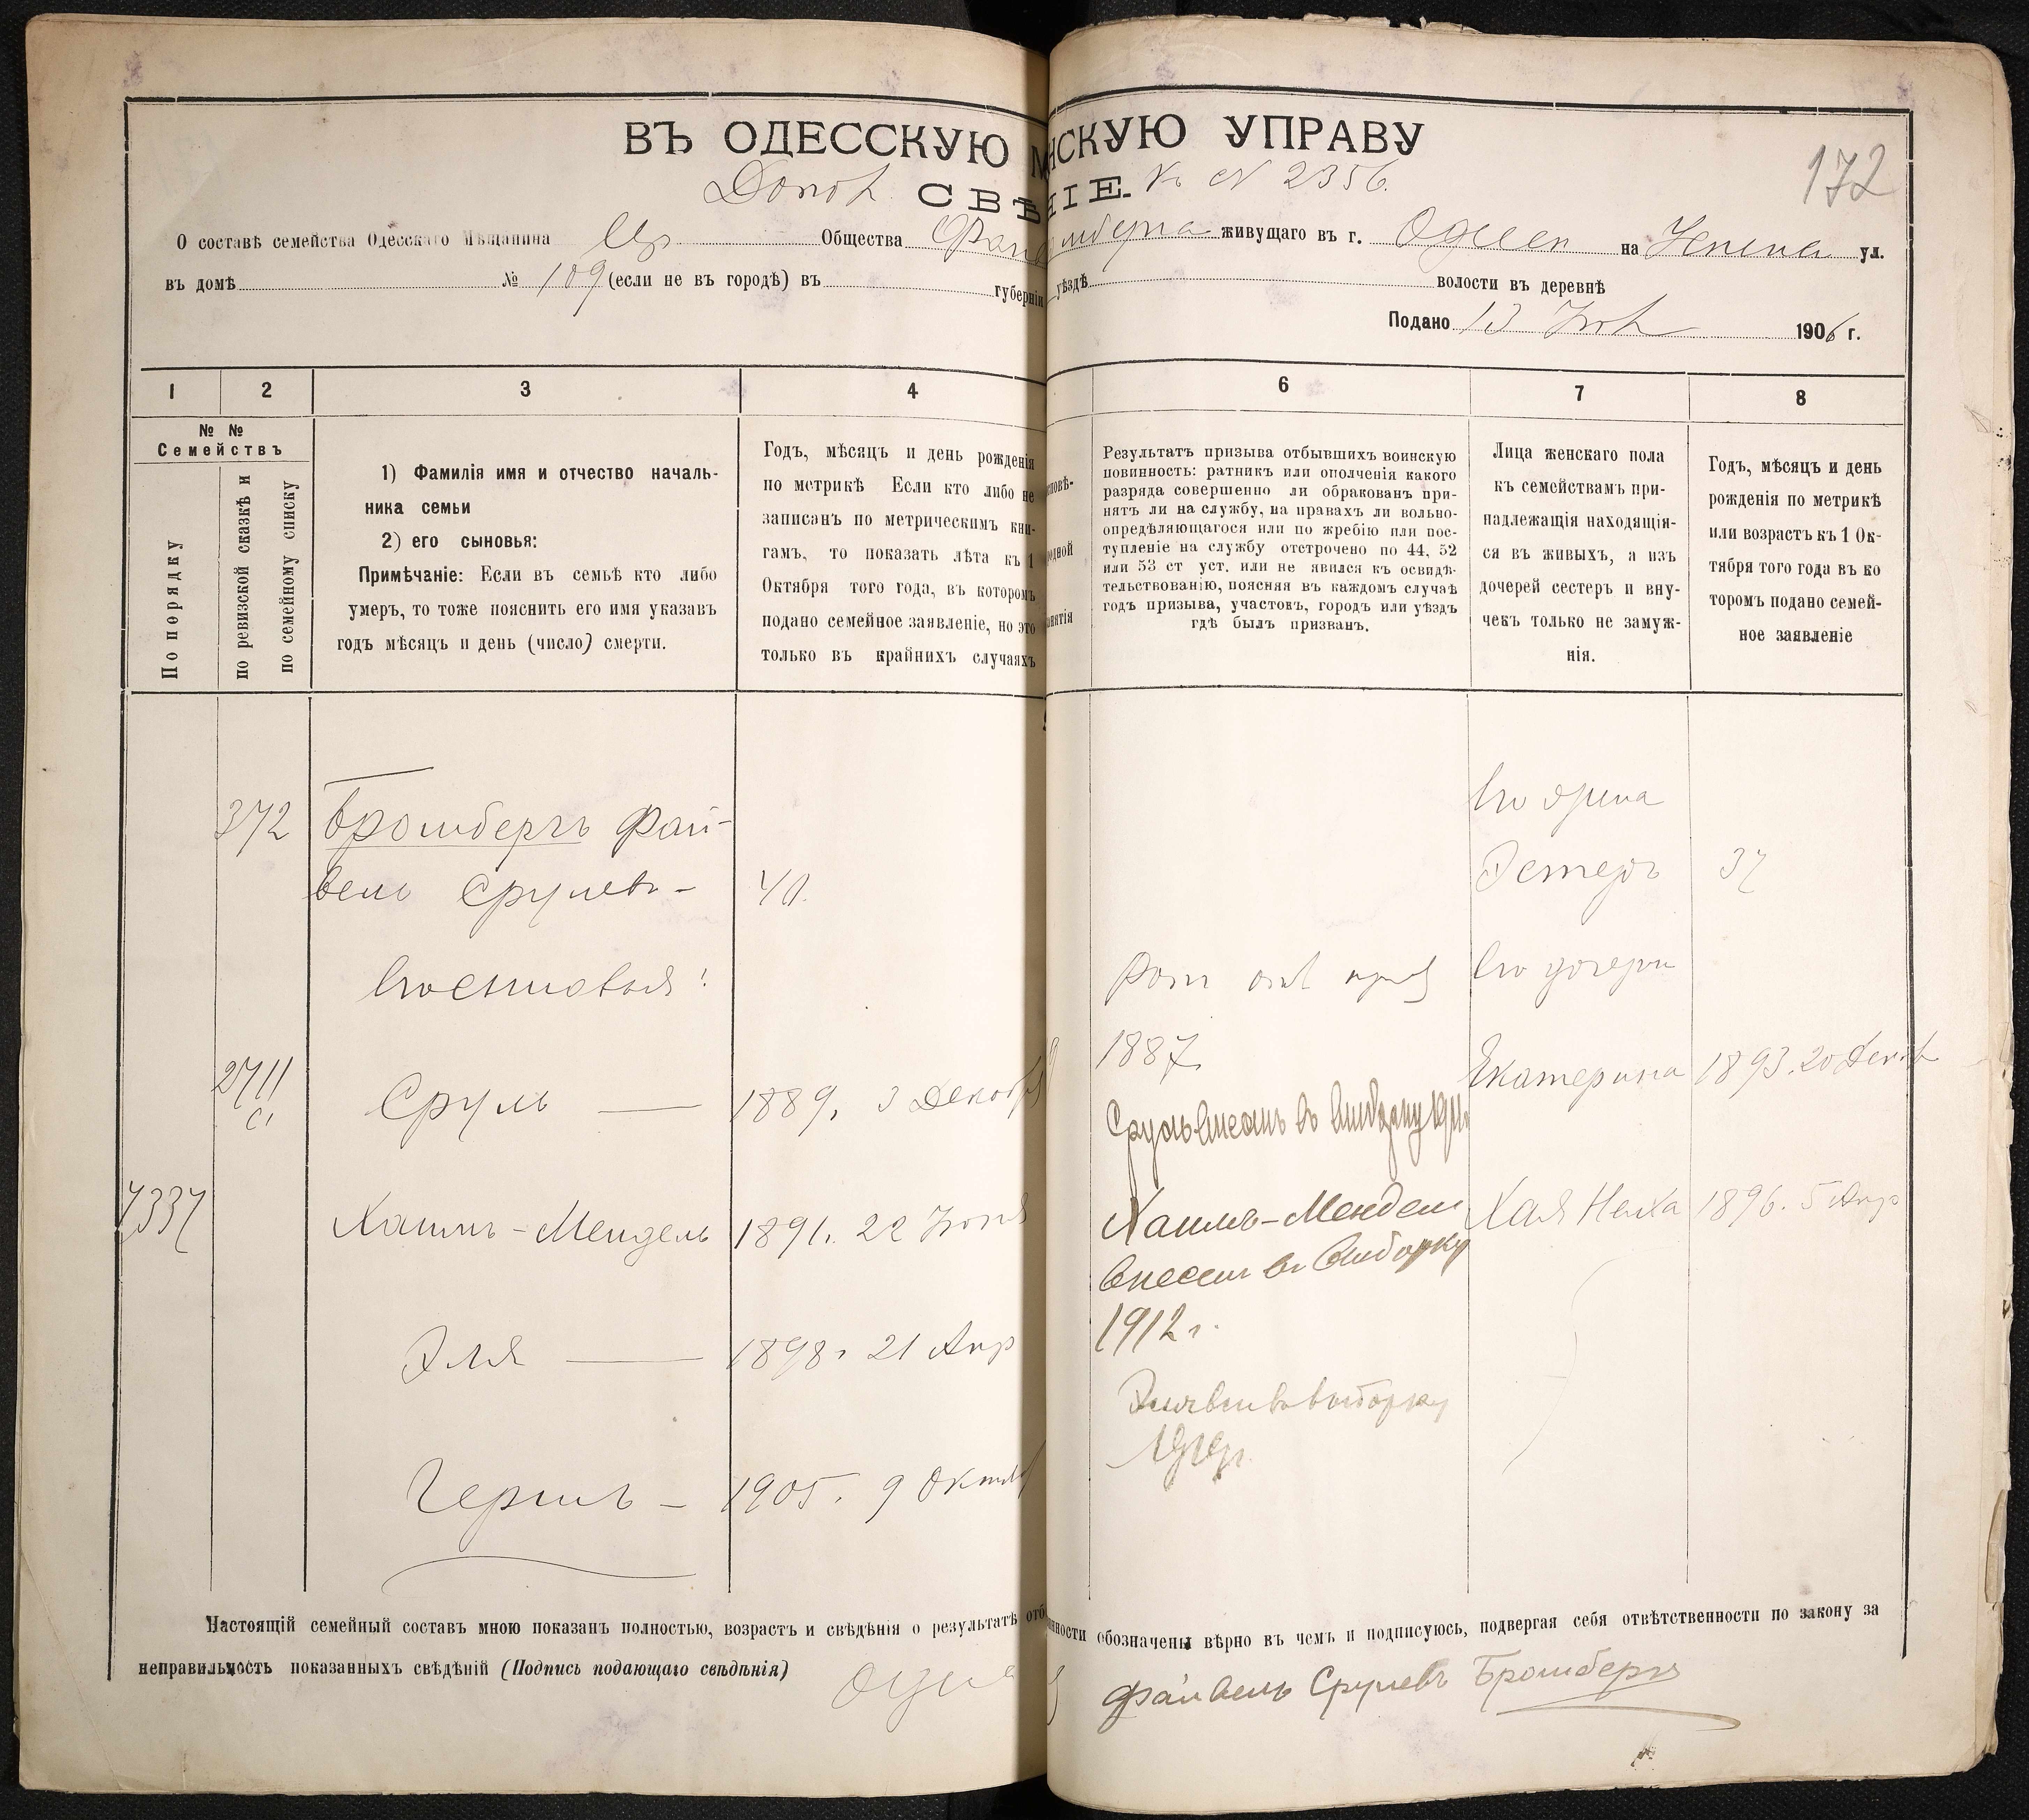 ВЪ ОДЕССКУЮ М НСКУЮ УПРАВУ
172
СВѢ НІЕ. к № 2356.
О составѣ семейства Одесскаго Мѣщанина Евр Общества живущаго въ г. Одессѣ на ул.
въ домѣ № 109 (если не въ городѣ) въ губерніи уѣздѣ волости въ деревнѣ
Подано 13 1906 г.
1 2 3 4 6 7 8
№ №
Семействъ
По порядку
по ревизской сказкѣ и
по семейному списку
1) Фамилія имя и отчество началь-
ника семьи
2) его сыновья:
Примѣчаніе: Если въ семьѣ кто либо
умеръ, то тоже пояснить его имя указавъ
годъ мѣсяцъ и день (число) смерти.
Годъ, мѣсяцъ и день рожденія
по метрикѣ Если кто либо не
записанъ по метрическимъ кни-
гамъ, то показать лѣта къ 1
Октября того года, въ которомъ
подано семейное заявленіе, но это
только въ крайнихъ случаяхъ
повѣ-
одной
анятія
Результатъ призыва отбывшихъ воинскую
повинность: ратникъ или ополченія какого
разряда совершенно ли обракованъ при-
нятъ ли на службу, на правахъ ли вольно-
опредѣляющагося или по жребію или пос-
тупленіе на службу отстрочено по 44, 52
или 53 ст уст. или не явился къ освидѣ-
тельствованію, поясняя въ каждомъ случаѣ
годъ призыва, участокъ, городъ или уѣздъ
гдѣ былъ призванъ.
Лица женскаго пола
къ семействамъ при-
надлежащія находящія-
ся въ живыхъ, а изъ
дочерей сестеръ и вну-
чекъ только не замуж-
нія.
Годъ, мѣсяцъ и день
рожденія по метрикѣ
или возрастъ къ 1 Ок-
тября того года въ ко
торомъ подано семей-
ное заявленіе
372 Бромбергъ Фай-
вель Срулевъ - 40.
Его жена
Эстеръ 37
Его сыновья:
1887
Его дочери
2711 Сруль — 1889. 3 Декабря
Екатерина 1893. 20 Декаб
Сруль внесенъ въ
7337 Хаимъ-Мендель 1891. 22 Іюня
Хаимъ-Мендель
внесенъ въ выборку
1912 г.
Хая Нехá 1896. 5 Апр
Эля — 1898. 21 Апр
Эля внес въ выборку
1919г.
Гершъ - 1905. 9 Октяб
Настоящій семейный составъ мною показанъ полностью, возрастъ и свѣдѣнія о результатѣ отб нности обозначены вѣрно въ чемъ и подписуюсь, подвергая себя отвѣтственности по закону за
неправильность показанныхъ свѣдѣній (Подпись подающаго свѣдѣнія)
Файвель Срулевъ Бромбергъ